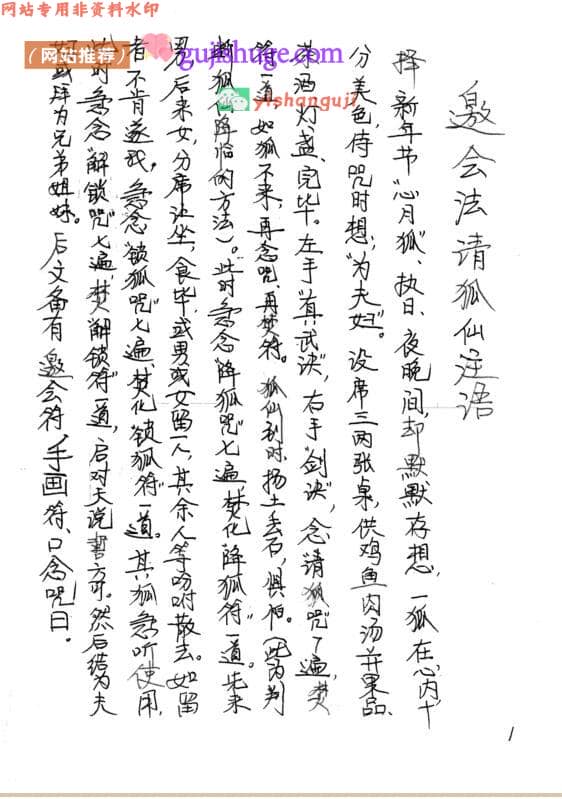 网站专用非资料水印
（网站推荐）
gujishuge.com
yishanguji
邀会法请狐仙注语
择新年节“心月狐”、执日、夜晚间，却默默存想，一狐在心内，十
分美色，侍咒时想：“为夫妇”。设席三两张桌，供鸡鱼肉汤并果品、
茶酒灯盏，完毕。左手“真武诀”，右手“剑诀”，念“请狐咒”7遍，焚
符一道，如狐不来，再念咒、再焚符。狐仙到时，扬土丢石，惧怕。（此为判
断狐仙降临的方法）。此时急念“降狐咒”七遍，焚化“降狐符”一道。先来
男后来女，分席让坐，食毕，或男或女留一人，其余人等吩咐散去。如留
者不肯遂我，急念“锁狐咒”七遍，焚化“锁狐符”一道。其狐急听使用，
此时急念“解锁咒”七遍，焚“解锁符”一道，启对天说誓方可。然后结为夫
妇或拜为兄弟姐妹。后文备有邀会符，手画符、口念咒曰。
1